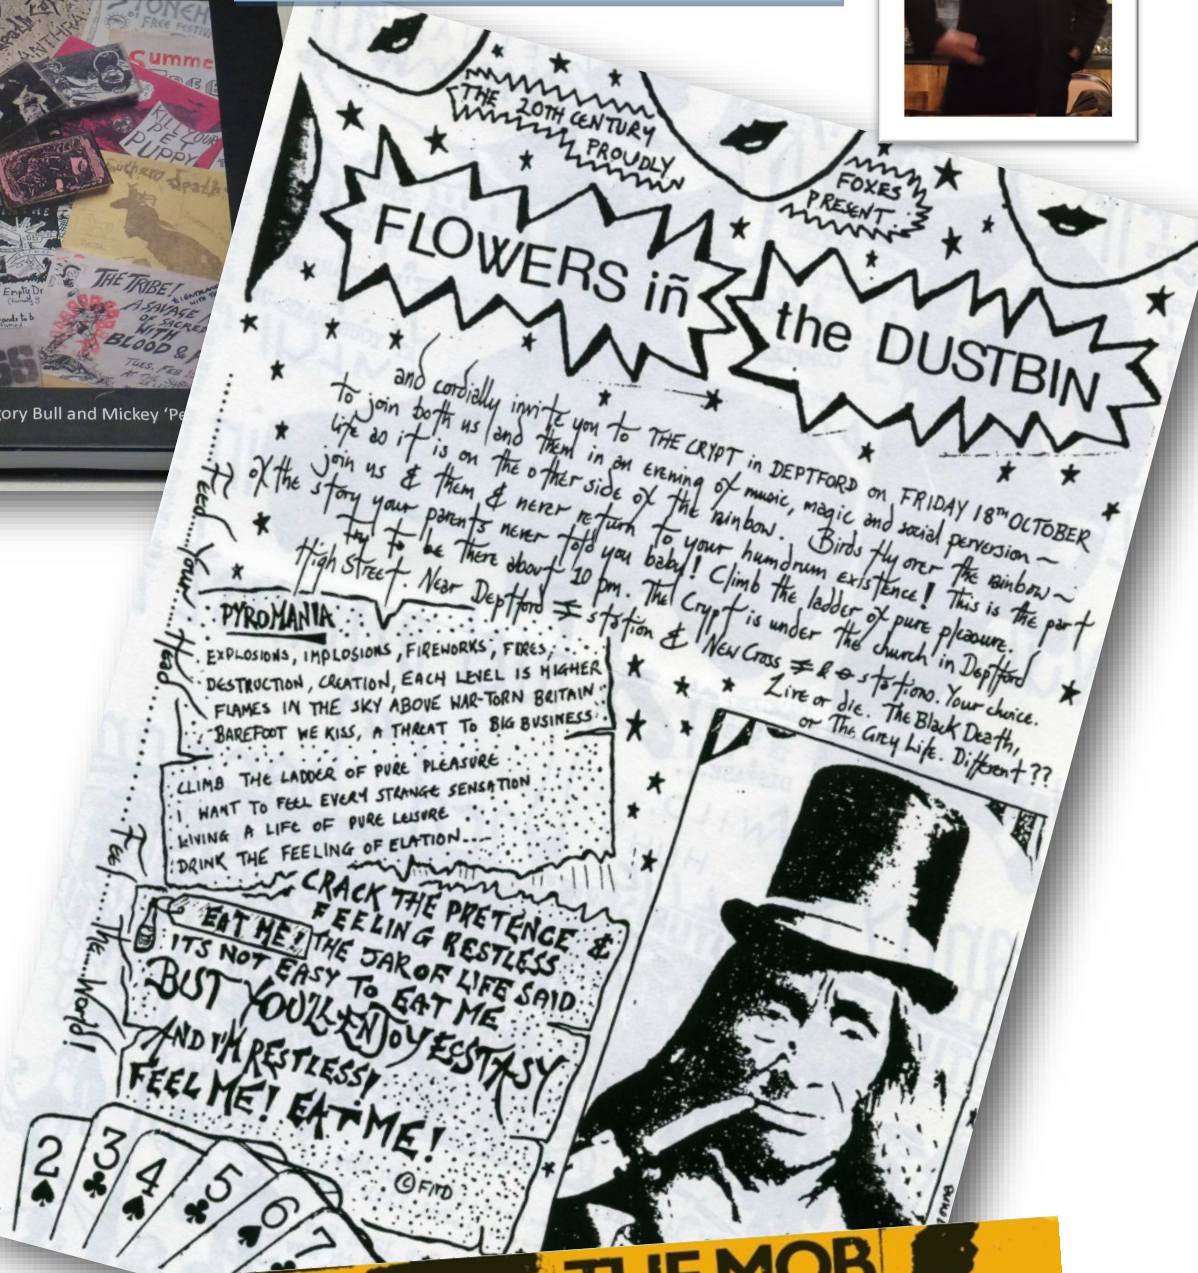 STONEH
FREE FESTIV
ANTHRA
Summe
KILL YOUR
PET
PUPPY
Southern Death
THE TRIBE!
A SAVAGE
OF SACRE
WITH
BLOOD &
TUES. FEB
gory Bull and Mickey ‘Pe
THE 20TH CENTURY
PROUDLY
FOXES
PRESENT
FLOWERS iñ
the DUSTBIN
and cordially invite you to THE CRYPT in DEPTFORD on FRIDAY 18TH OCTOBER
to join both us and them in an evening of music, magic and social perversion ~
life as it is on the other side of the rainbow. Birds fly over the rainbow ~
join us & them & never return to your humdrum existence! This is the part
of the story your parents never told you baby! Climb the ladder of pure pleasure.
try to be there about 10 pm. The Crypt is under the church in Deptford
High Street. Near Deptford station & New Cross & stations. Your choice.
Live or die. The Black Death,
or The Grey Life. Different ??
Feed Your Head
Feel The World!
PYROMANIA
EXPLOSIONS, IMPLOSIONS, FIREWORKS, FIRES,
DESTRUCTION, CREATION, EACH LEVEL IS HIGHER
FLAMES IN THE SKY ABOVE WAR-TORN BRITAIN
BAREFOOT WE KISS, A THREAT TO BIG BUSINESS
CLIMB THE LADDER OF PURE PLEASURE
I WANT TO FEEL EVERY STRANGE SENSATION
LIVING A LIFE OF PURE LEISURE
DRINK THE FEELING OF ELATION...
CRACK THE PRETENCE &
FEELING RESTLESS
EAT ME! THE JAR OF LIFE SAID
ITS NOT EASY TO EAT ME
BUT YOU'LL ENJOY ECSTASY
AND I'M RESTLESS!
FEEL ME! EAT ME!
© FITD
2 3 4 5 6 7
THE MOB